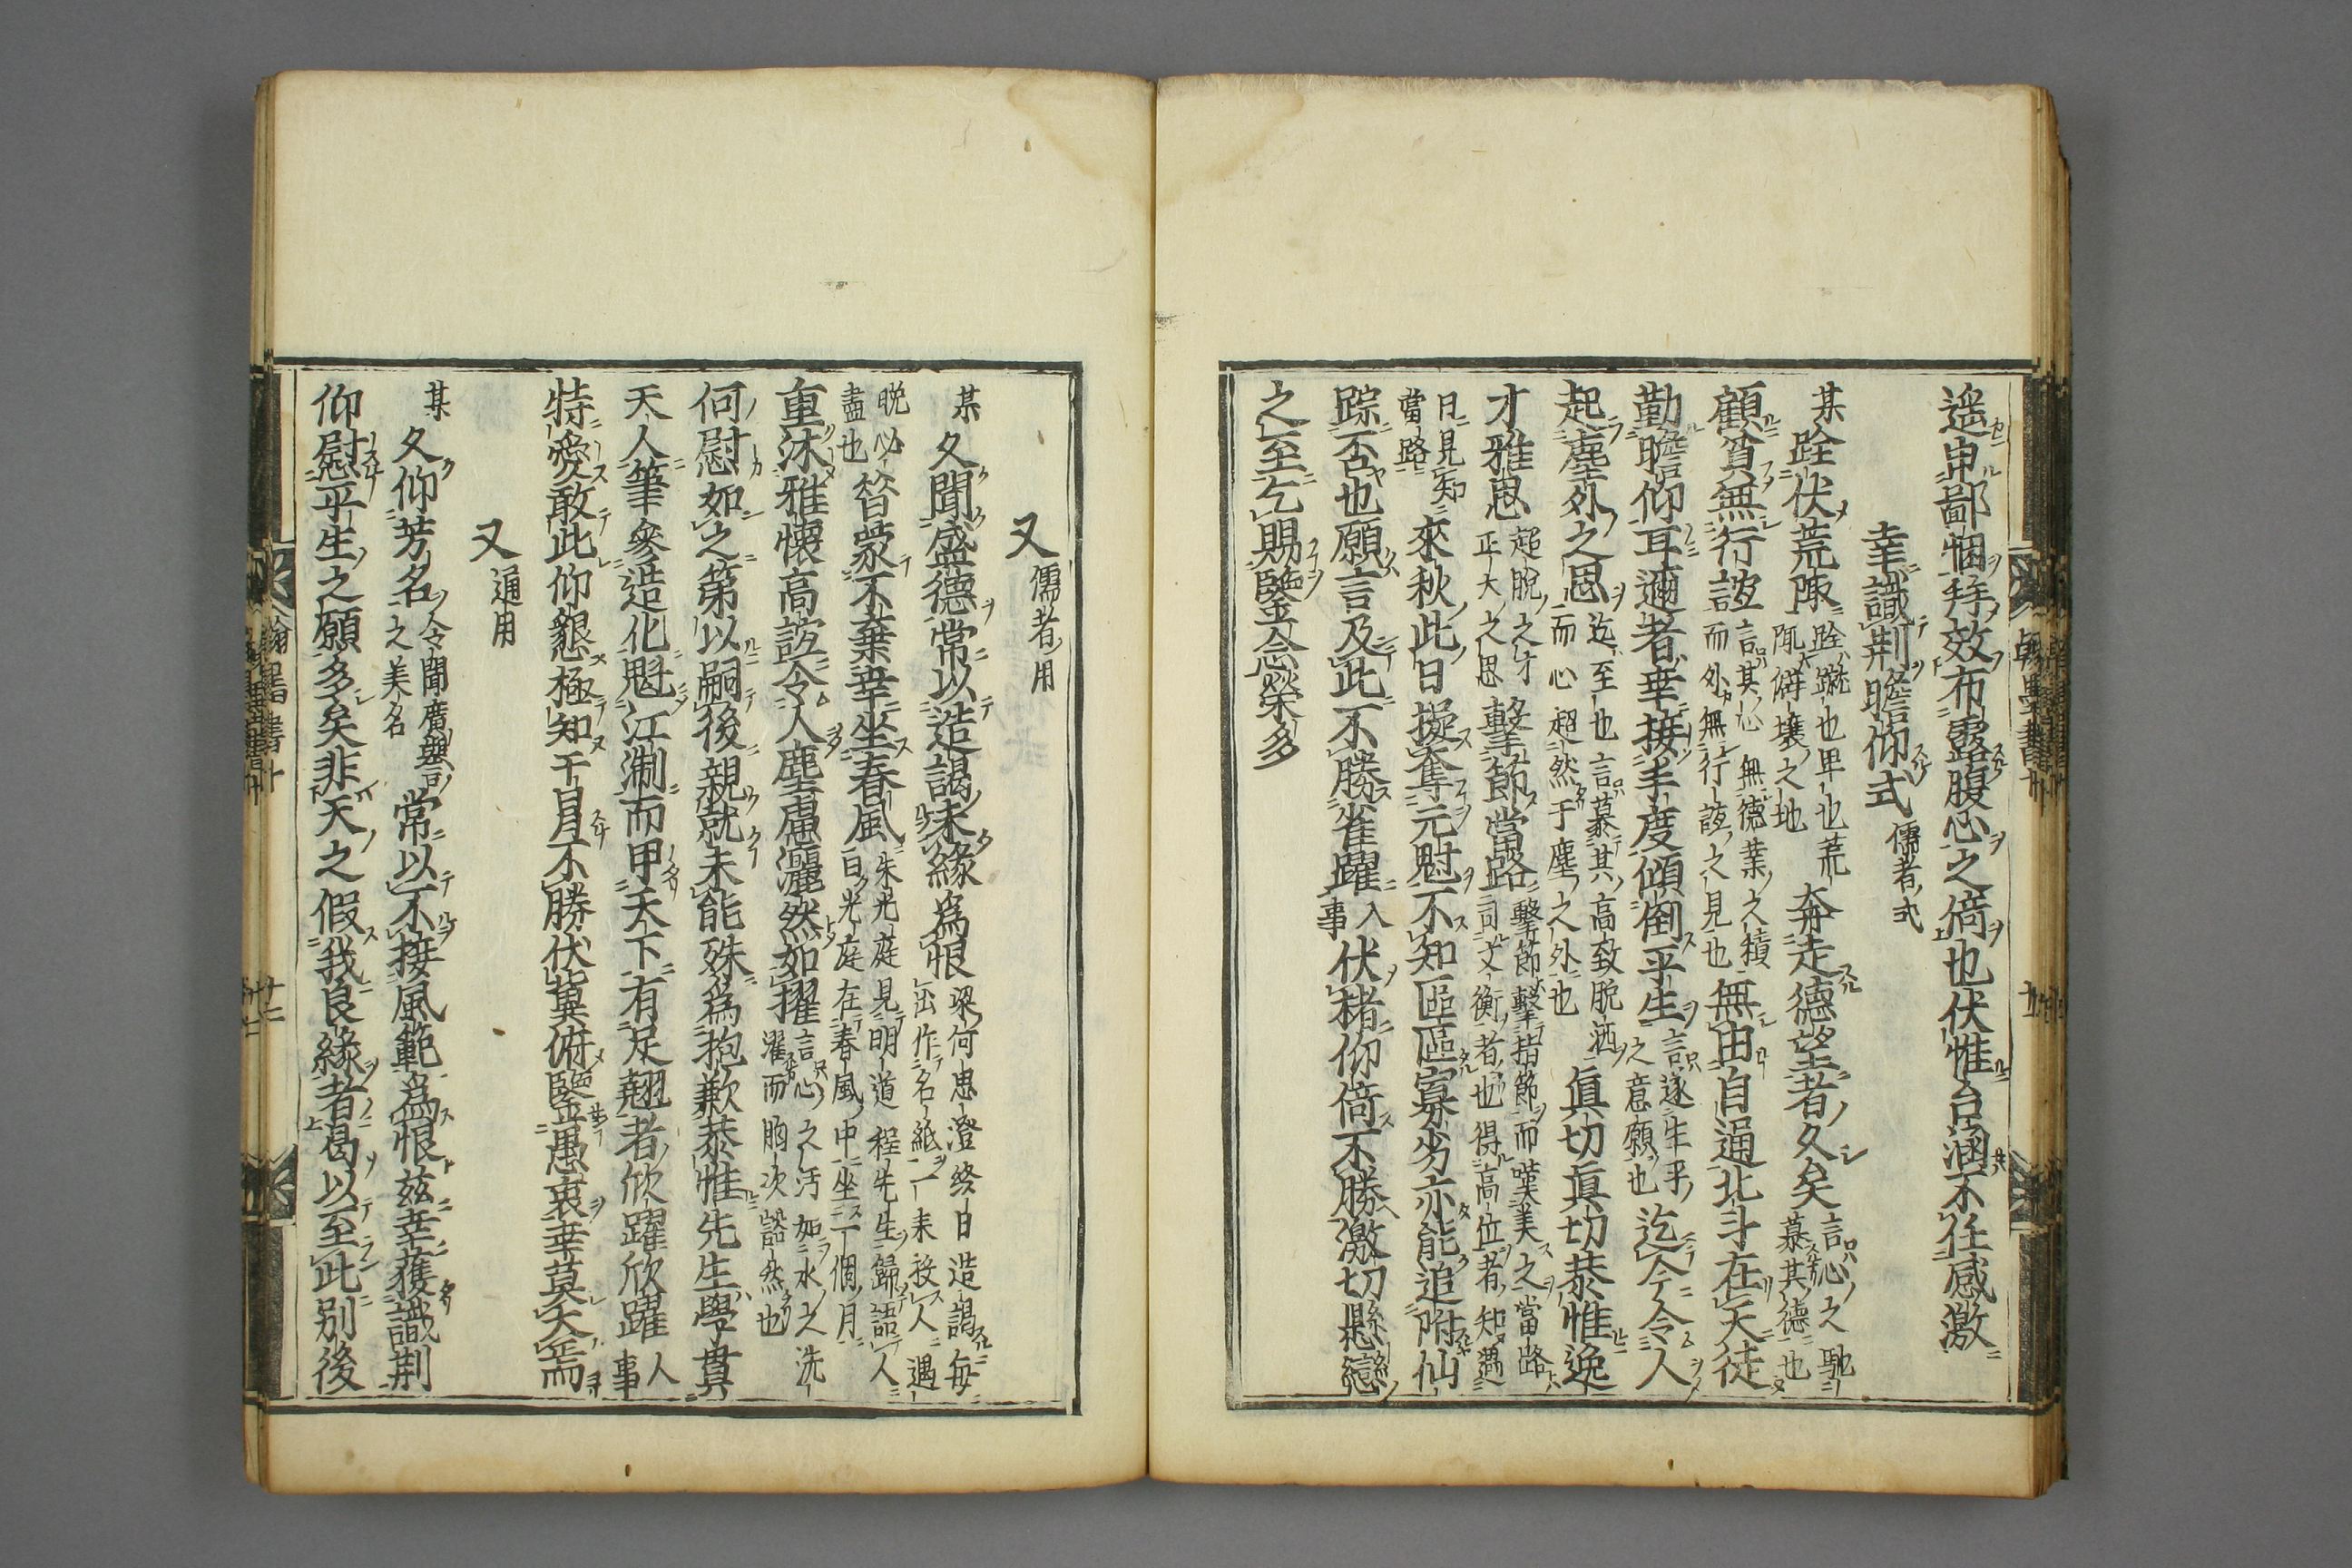 遙申鄙悃拜效布露腹心之倚也伏惟台涵不任感激
幸識荆瞻仰式 儒者式
某跧伏荒陬 跧蹴也卑也荒陬僻壤之地 奔走德望者久矣 言心之馳慕其德也
顧貧無行誼 言其心無德業之積而外無行誼之見也 無由自通北斗在天徒
勤瞻仰耳邇者幸接手度傾倒平生 言遂生平之意願也 迄今令人
起塵外之思 迄至也言慕其高致脫洒而心超然于塵之外也 眞切眞切恭惟逸
才雅思 超脫之才正大之思 擊節當路 擊節擊指節而嘆美之當路司文衡者也得高位者知遇
日見知當路 來秋此日擬奪元魁不知區區寡劣亦能追附仙
踪否也願言及此不勝雀躍 入事 伏楮仰倚不勝激切懸戀
之至乞賜鑒念榮多
又 儒者用
某久聞盛德常以造謁未緣爲恨 梁何思澄終日造謁每出作名紙一束投人遇
晚必盡也 昝蒙不棄幸坐春風 朱光庭見明道程先生歸語人曰光庭在春風中坐一個月
重沐雅懷高誼令人塵慮灑然如擢 言心之汚如水之洗濯而胸次豁然也
何慰如之第以嗣後親就未能殊爲抱歉恭惟先生學貫
天人筆參造化魁江淛而甲天下有足翹者欣躍欣躍 人事
特愛敢此仰懇極知干冒不勝伏冀俯鑒愚衷幸莫大焉
又 通用
某久仰芳名 令聞廣譽言之美名 常以不接風範爲恨茲幸獲識荆
仰慰平生之願多矣非天之假我良緣者曷以至此別後
翰墨書 十
十二